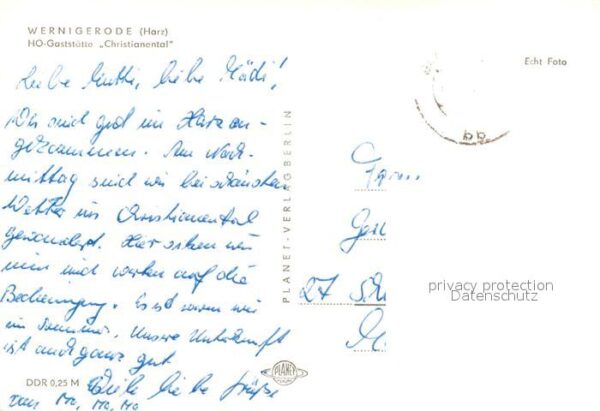 WERNIGERODE (Harz)
HO-Gaststätte „Christianental"
Echt Foto
Liebe Mutti, liebe Mädi!
Wir sind gut im Harz an-
gekommen. Am Nach-
mittag sind wir bei schönsten
Wetter ins Christianental
gewandert. Hier sitzen wir
nun und warten auf die
Bedienung. Es ist warm wie
im Sommer. Unsere Unterkunft
ist auch ganz gut
Viele liebe Grüße
von
PLANET-VERLAG BERLIN
bb
27
privacy protection
Datenschutz
PLANET
DDR 0,25 M